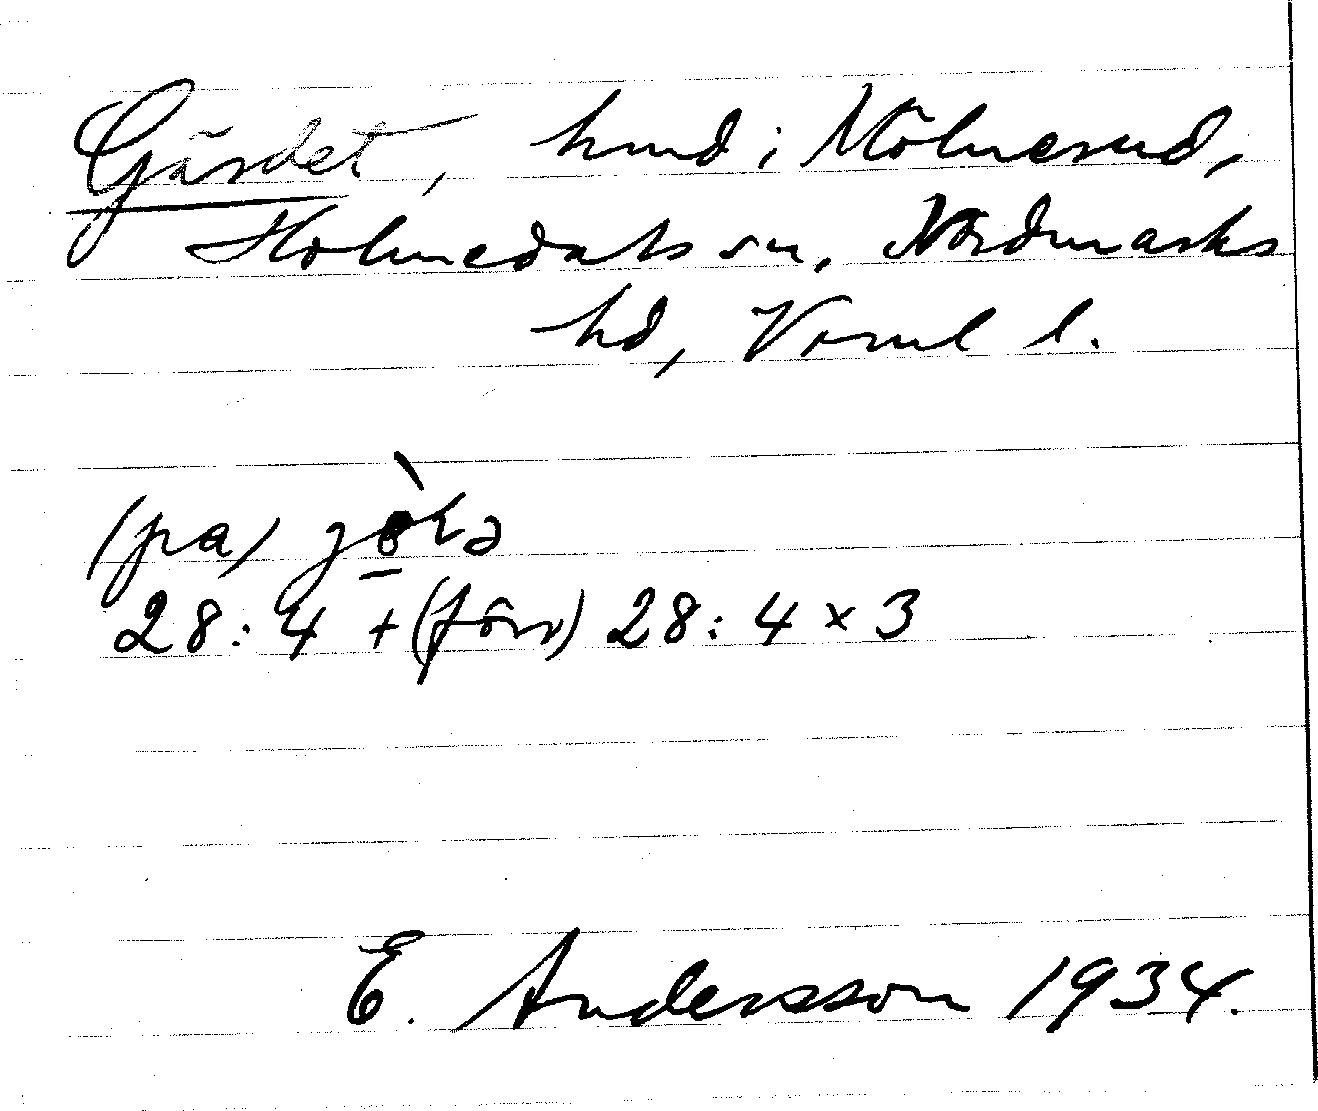 Gärdet, hmd i Mölnerud,
Holmedals sn, Nordmarks
hd, Vrml l.
(pa)
28:4 + (förv) 28:4 x 3
E. Andersson 1934.